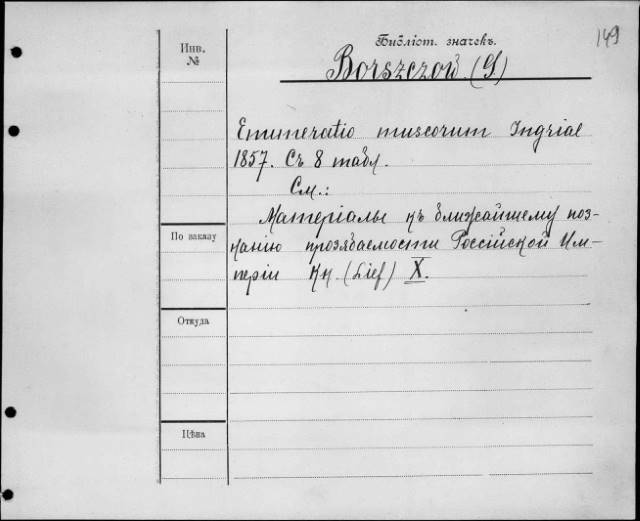 149
Инв.
№
Библіот. значекъ.
Borszczow (G)
Enumeratio muscorum Ingriae
1857. Съ 8 табл.
См.:
Матеріалы къ ближайшему поз-
нанію прозябаемости Россійской Им-
періи Кн. (Lief) X.
По заказу
Откуда
Цѣна